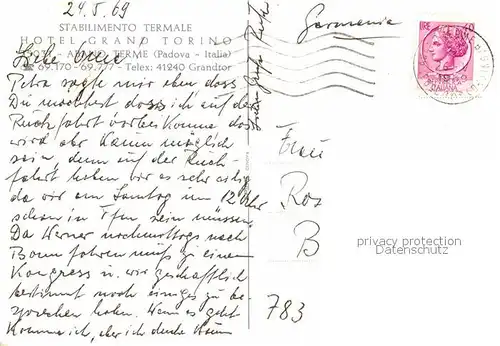 24.5.69
STABILIMENTO TERMALE
HOTEL GRAND TORINO
TERME (Padova - Italia)
69.170 - 69. Telex: 41240 Grandtor
Liebe
Petra sagte mir eben dass
Du möchtest dass ich auf der
Rückfahrt vorbei komme das
wird aber kaum möglich
sein, denn auf der Rück-
fahrt haben wir es sehr eilig
da wir am Samstag um 12 Uhr
schon in sein müssen.
Da Werner nachmittags nach
Bonn fahren muß zu einem
Kongress u. wir geschäftlich
bestimmt noch einiges zu be-
sprechen haben. Wenn es geht
komme ich, aber ich denke kaum
Germania
LIRE 40
Frau
Ros
B
783
privacy protection
Datenschutz